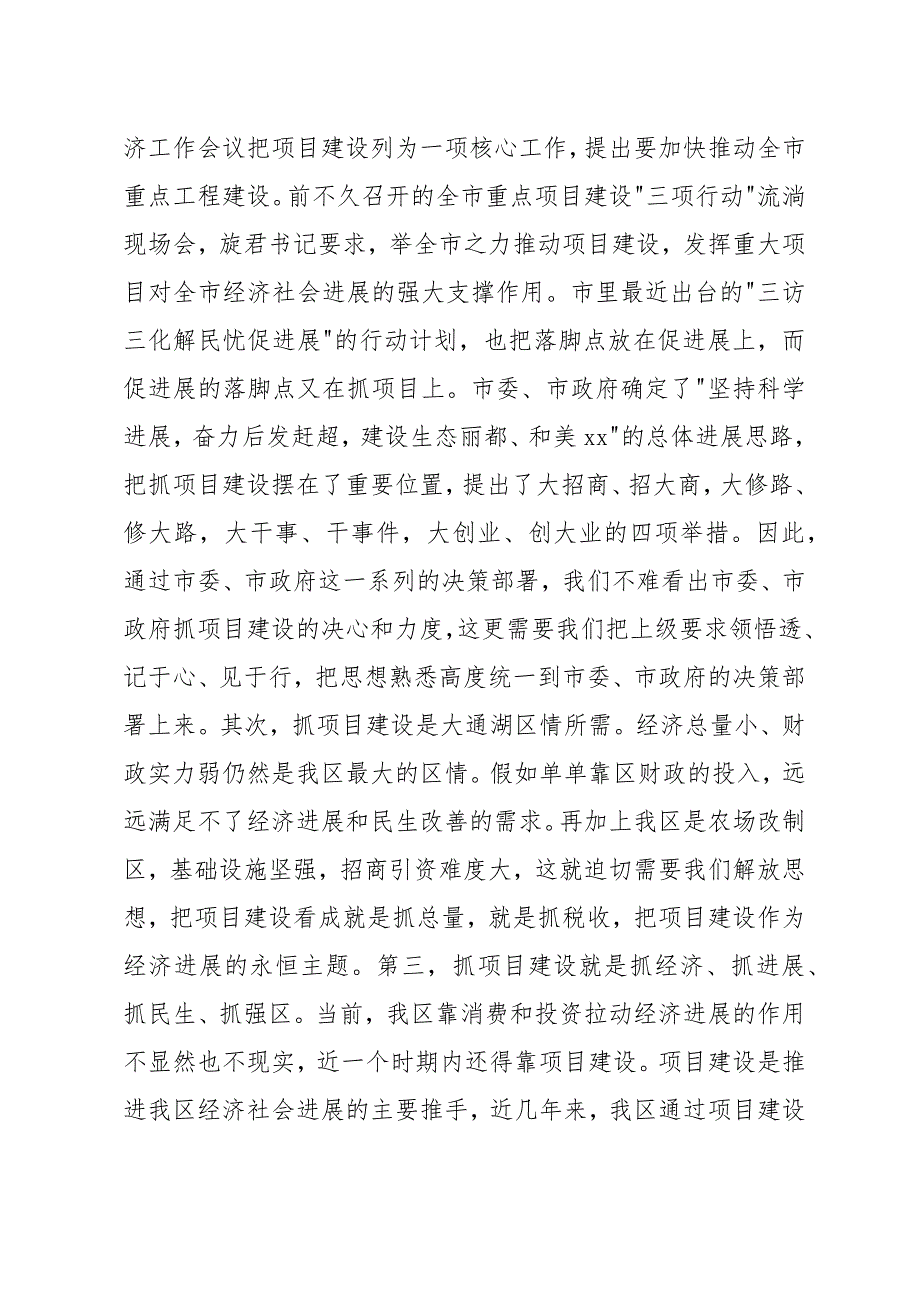 济工作会议把项目建设列为一项核心工作，提出要加快推动全市
重点工程建设。前不久召开的全市重点项目建设"三项行动"流淌
现场会，旋君书记要求，举全市之力推动项目建设，发挥重大项
目对全市经济社会进展的强大支撑作用。市里最近出台的"三访
三化解民忧促进展"的行动计划，也把落脚点放在促进展上，而
促进展的落脚点又在抓项目上。市委、市政府确定了"坚持科学
进展，奋力后发赶超，建设生态丽都、和美 xx"的总体进展思路，
把抓项目建设摆在了重要位置，提出了大招商、招大商，大修路、
修大路，大干事、干事件，大创业、创大业的四项举措。因此，
通过市委、市政府这一系列的决策部署，我们不难看出市委、市
政府抓项目建设的决心和力度，这更需要我们把上级要求领悟透、
记于心、见于行，把思想熟悉高度统一到市委、市政府的决策部
署上来。其次，抓项目建设是大通湖区情所需。经济总量小、财
政实力弱仍然是我区最大的区情。假如单单靠区财政的投入，远
远满足不了经济进展和民生改善的需求。再加上我区是农场改制
区，基础设施坚强，招商引资难度大，这就迫切需要我们解放思
想，把项目建设看成就是抓总量，就是抓税收，把项目建设作为
经济进展的永恒主题。第三，抓项目建设就是抓经济、抓进展、
抓民生、抓强区。当前，我区靠消费和投资拉动经济进展的作用
不显然也不现实，近一个时期内还得靠项目建设。项目建设是推
进我区经济社会进展的主要推手，近几年来，我区通过项目建设